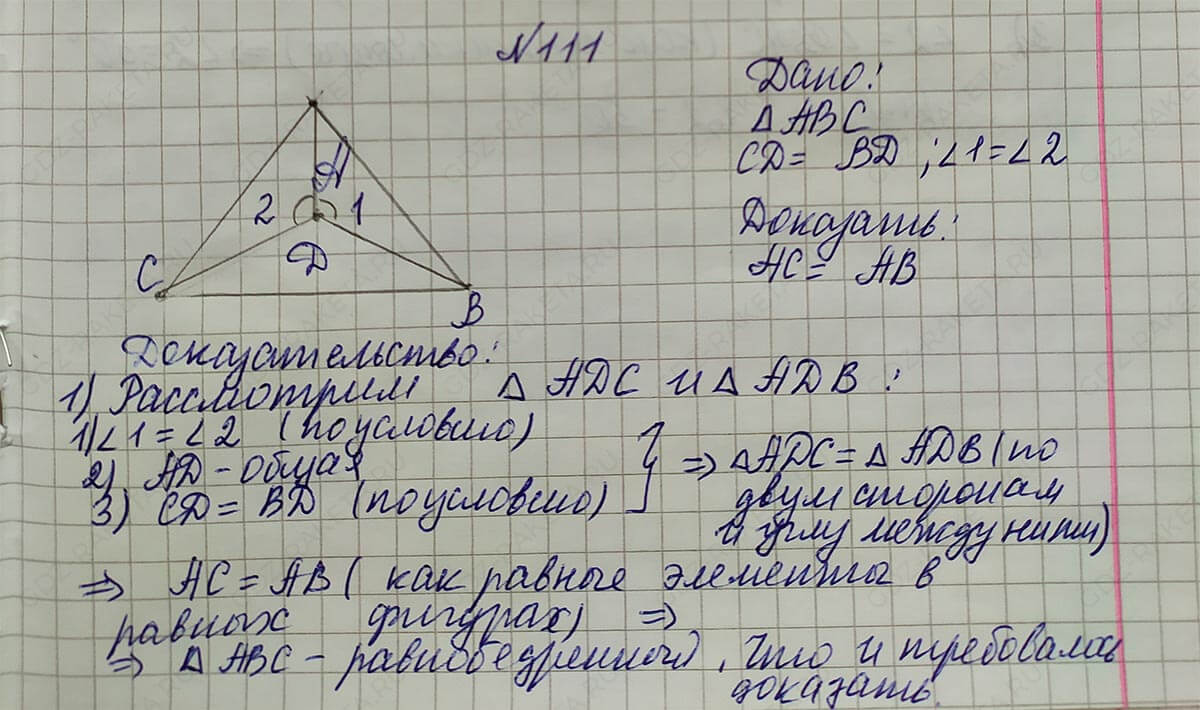 №111
Дано:
△ ABC
CD = BD ; ∠1 = ∠2
Доказать:
AC = AB
A
2 1
D
C
B
Доказательство:
1) Рассмотрим △ ADC и △ ADB :
1) ∠1 = ∠2 (по условию)
2) AD - общая
3) CD = BD (по условию)
} ⇒ △ADC = △ ADB (по
двум сторонам
и углу между ними)
⇒ AC = AB ( как равные элементы в
равных фигурах) ⇒
⇒ △ ABC - равнобедренный. Что и требовалось
доказать.